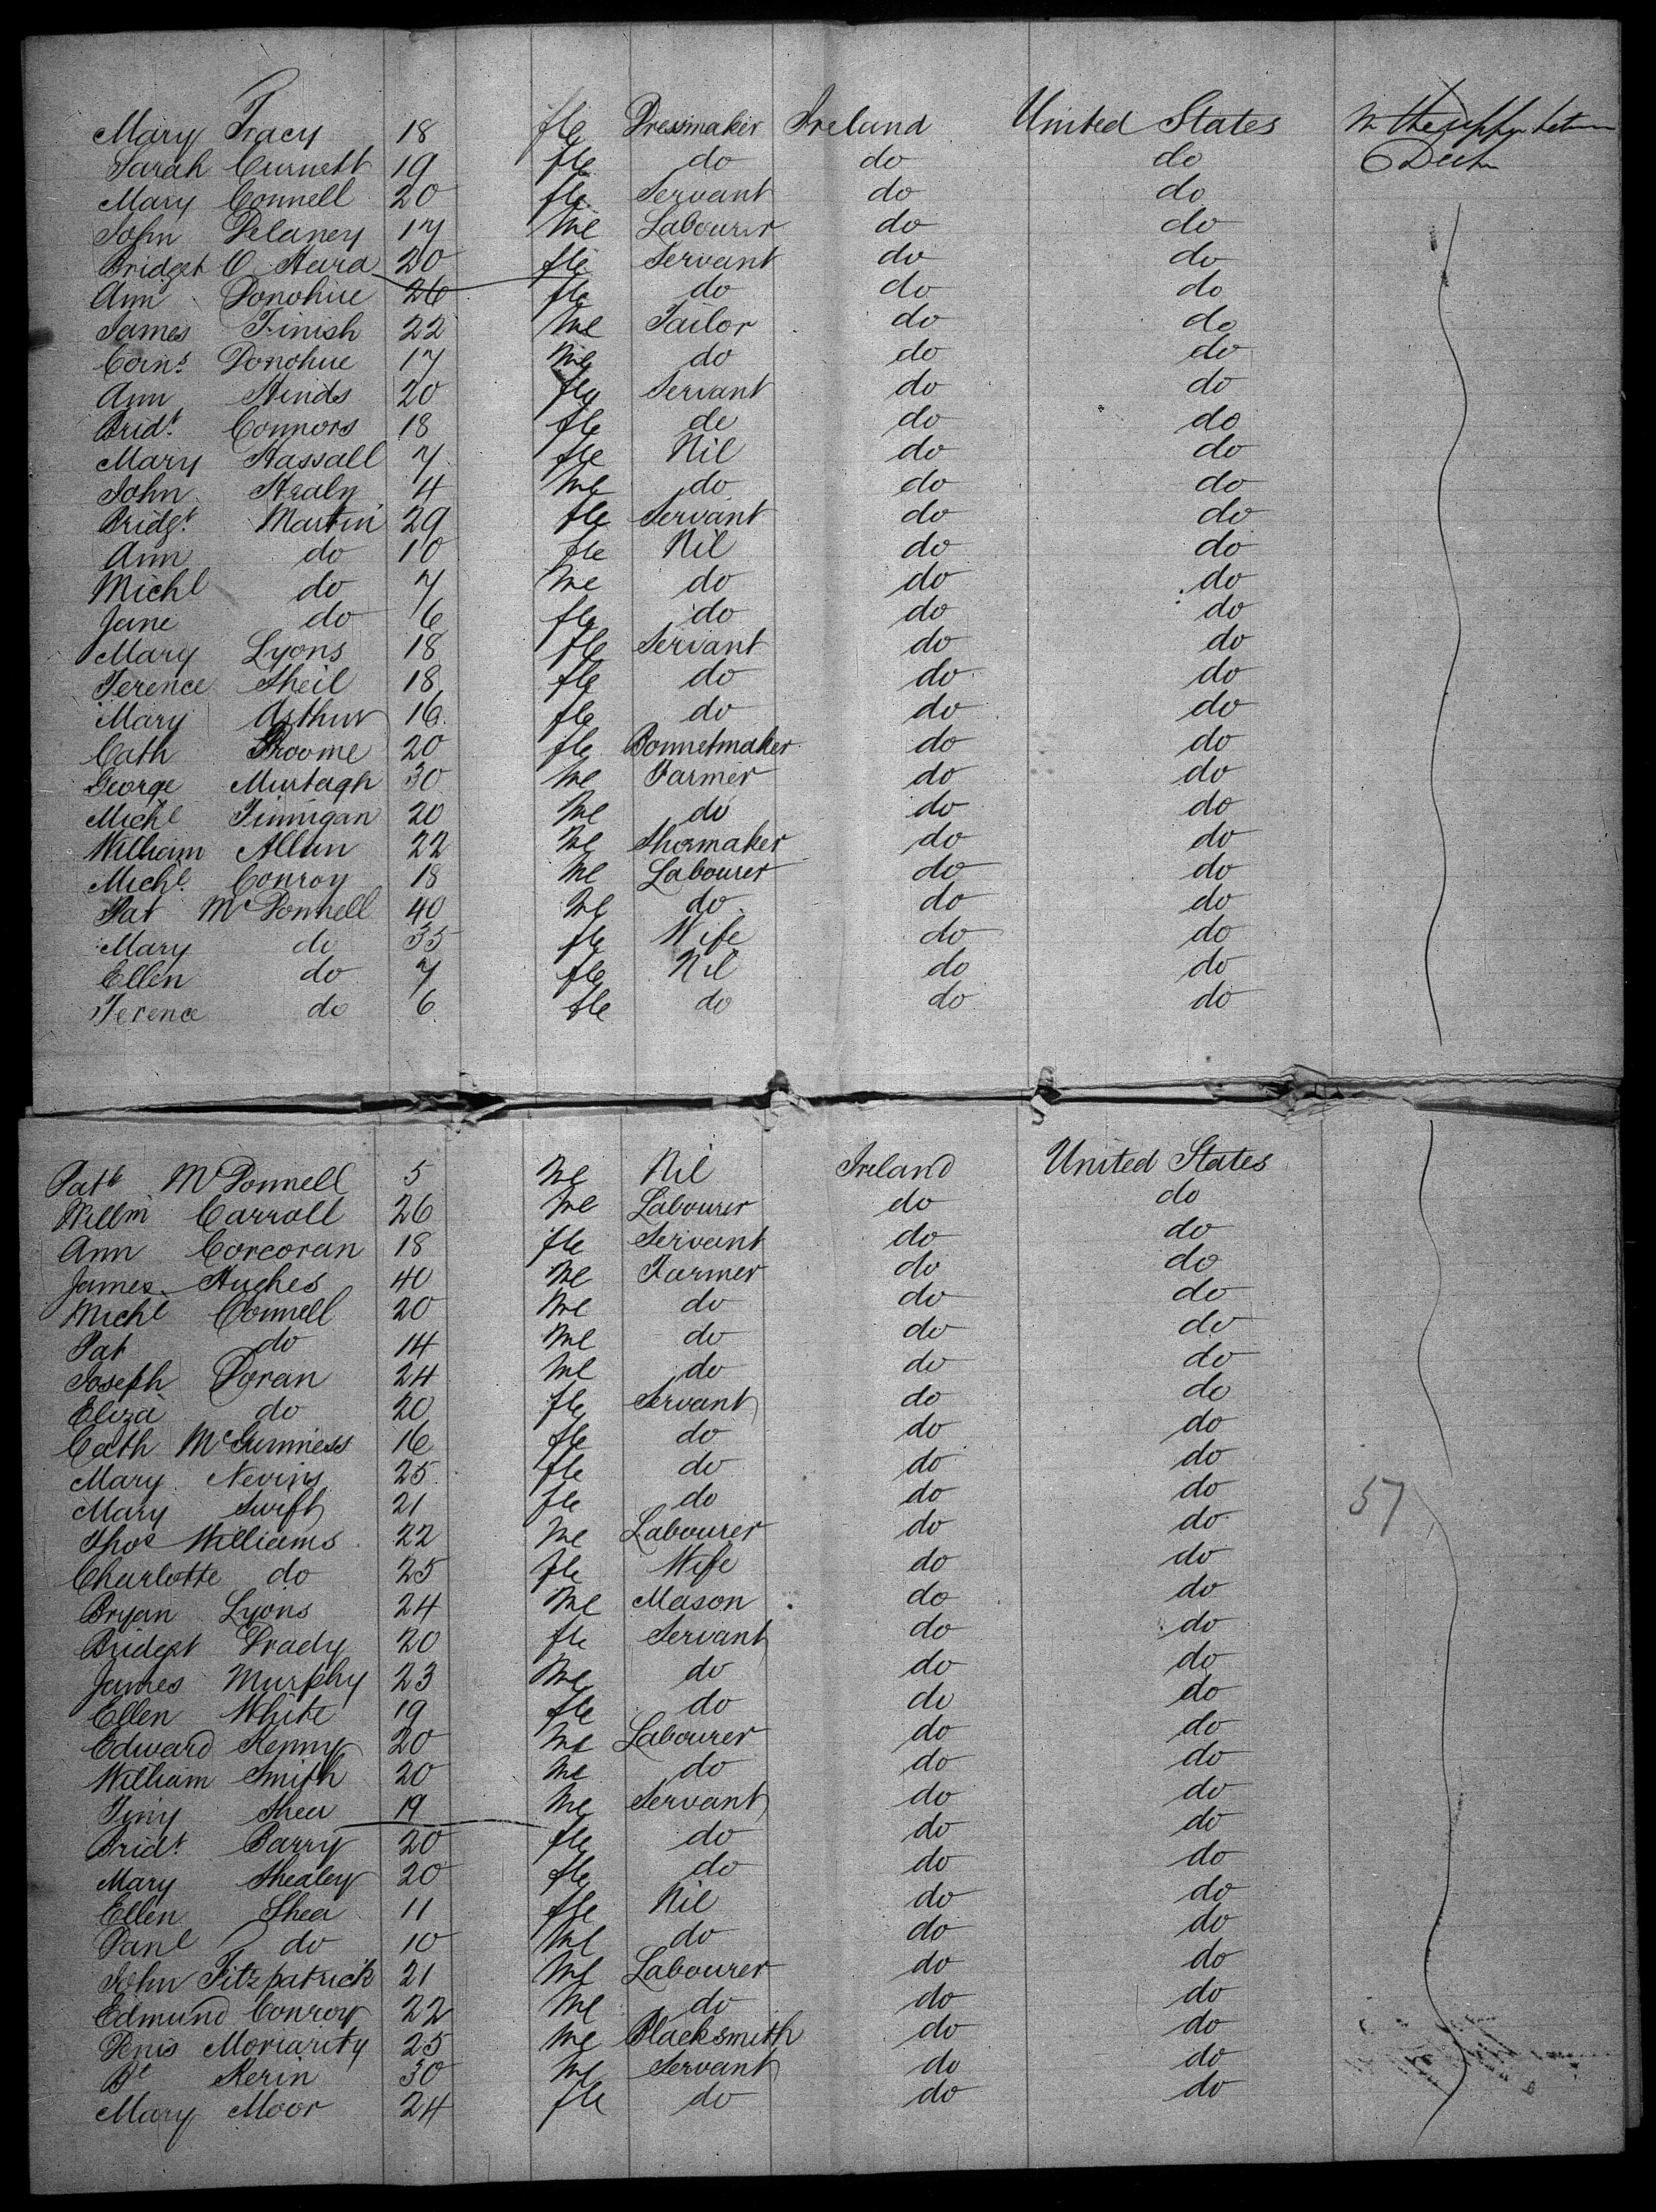 Mary Tracy 18 fle Dressmaker Ireland United States
Sarah Curnett 19 fle do do do 6 Deck
Mary Connell 20 fle Servant do do
John Delaney 17 Me Labourer do do
Bridget O Hara 20 fle Servant do do
Ann Donohue 26 fle do do do
James Finish 22 Me Tailor do do
Corns. Donohue 17 Me do do do
Ann Hinds 20 fle Servant do do
Bridt. Connors 18 fle do do do
Mary Hassall 7 fle Nil do do
John Healy 4 Me do do do
Bridgt. Martin 29 fle Servant do do
Ann do 10 fle Nil do do
Michl do 7 Me do do do
Jane do 6 fle do do do
Mary Lyons 18 fle Servant do do
Terence Sheil 18 fle do do do
Mary Arthur 16 fle do do do
Cath Broome 20 fle Bonnetmaker do do
George Murtagh 30 Me Farmer do do
Michl Finnigan 20 Me do do do
William Allen 22 Me Shoemaker do do
Michl. Conroy 18 Me Labourer do do
Pat McDonnell 40 Me do do do
Mary do 35 fle Wife do do
Ellen do 7 fle Nil do do
Terence do 6 fle do do do
Patk McDonnell 5 Me Nil Ireland United States
Willm Carroll 26 Me Labourer do do
Ann Corcoran 18 fle Servant do do
James Hughes 40 Me Farmer do do
Michl Connell 20 Me do do do
Pat do 14 Me do do do
Joseph Doran 24 Me do do do
Eliza do 20 fle Servant do do
Cath McGuinness 16 fle do do do
Mary Nevins 25 fle do do do
Mary Swift 21 fle do do do 57
Thos Williams 22 Me Labourer do do
Charlotte do 25 fle Wife do do
Bryan Lyons 24 Me Mason do do
Bridget Grady 20 fle Servant do do
James Murphy 23 Me do do do
Ellen White 19 fle do do do
Edward Kenny 20 Me Labourer do do
William Smith 20 Me do do do
Timy Shea 19 Me Servant do do
Bridt. Barry 20 fle do do do
Mary Shealey 20 fle do do do
Ellen Shea 11 fle Nil do do
Danl do 10 Me do do do
John Fitzpatrick 21 Me Labourer do do
Edmund Conroy 22 Me do do do
Denis Moriarity 25 Me Blacksmith do do
Bt Kerin 30 Me Servant do do
Mary Moor 24 fle do do do